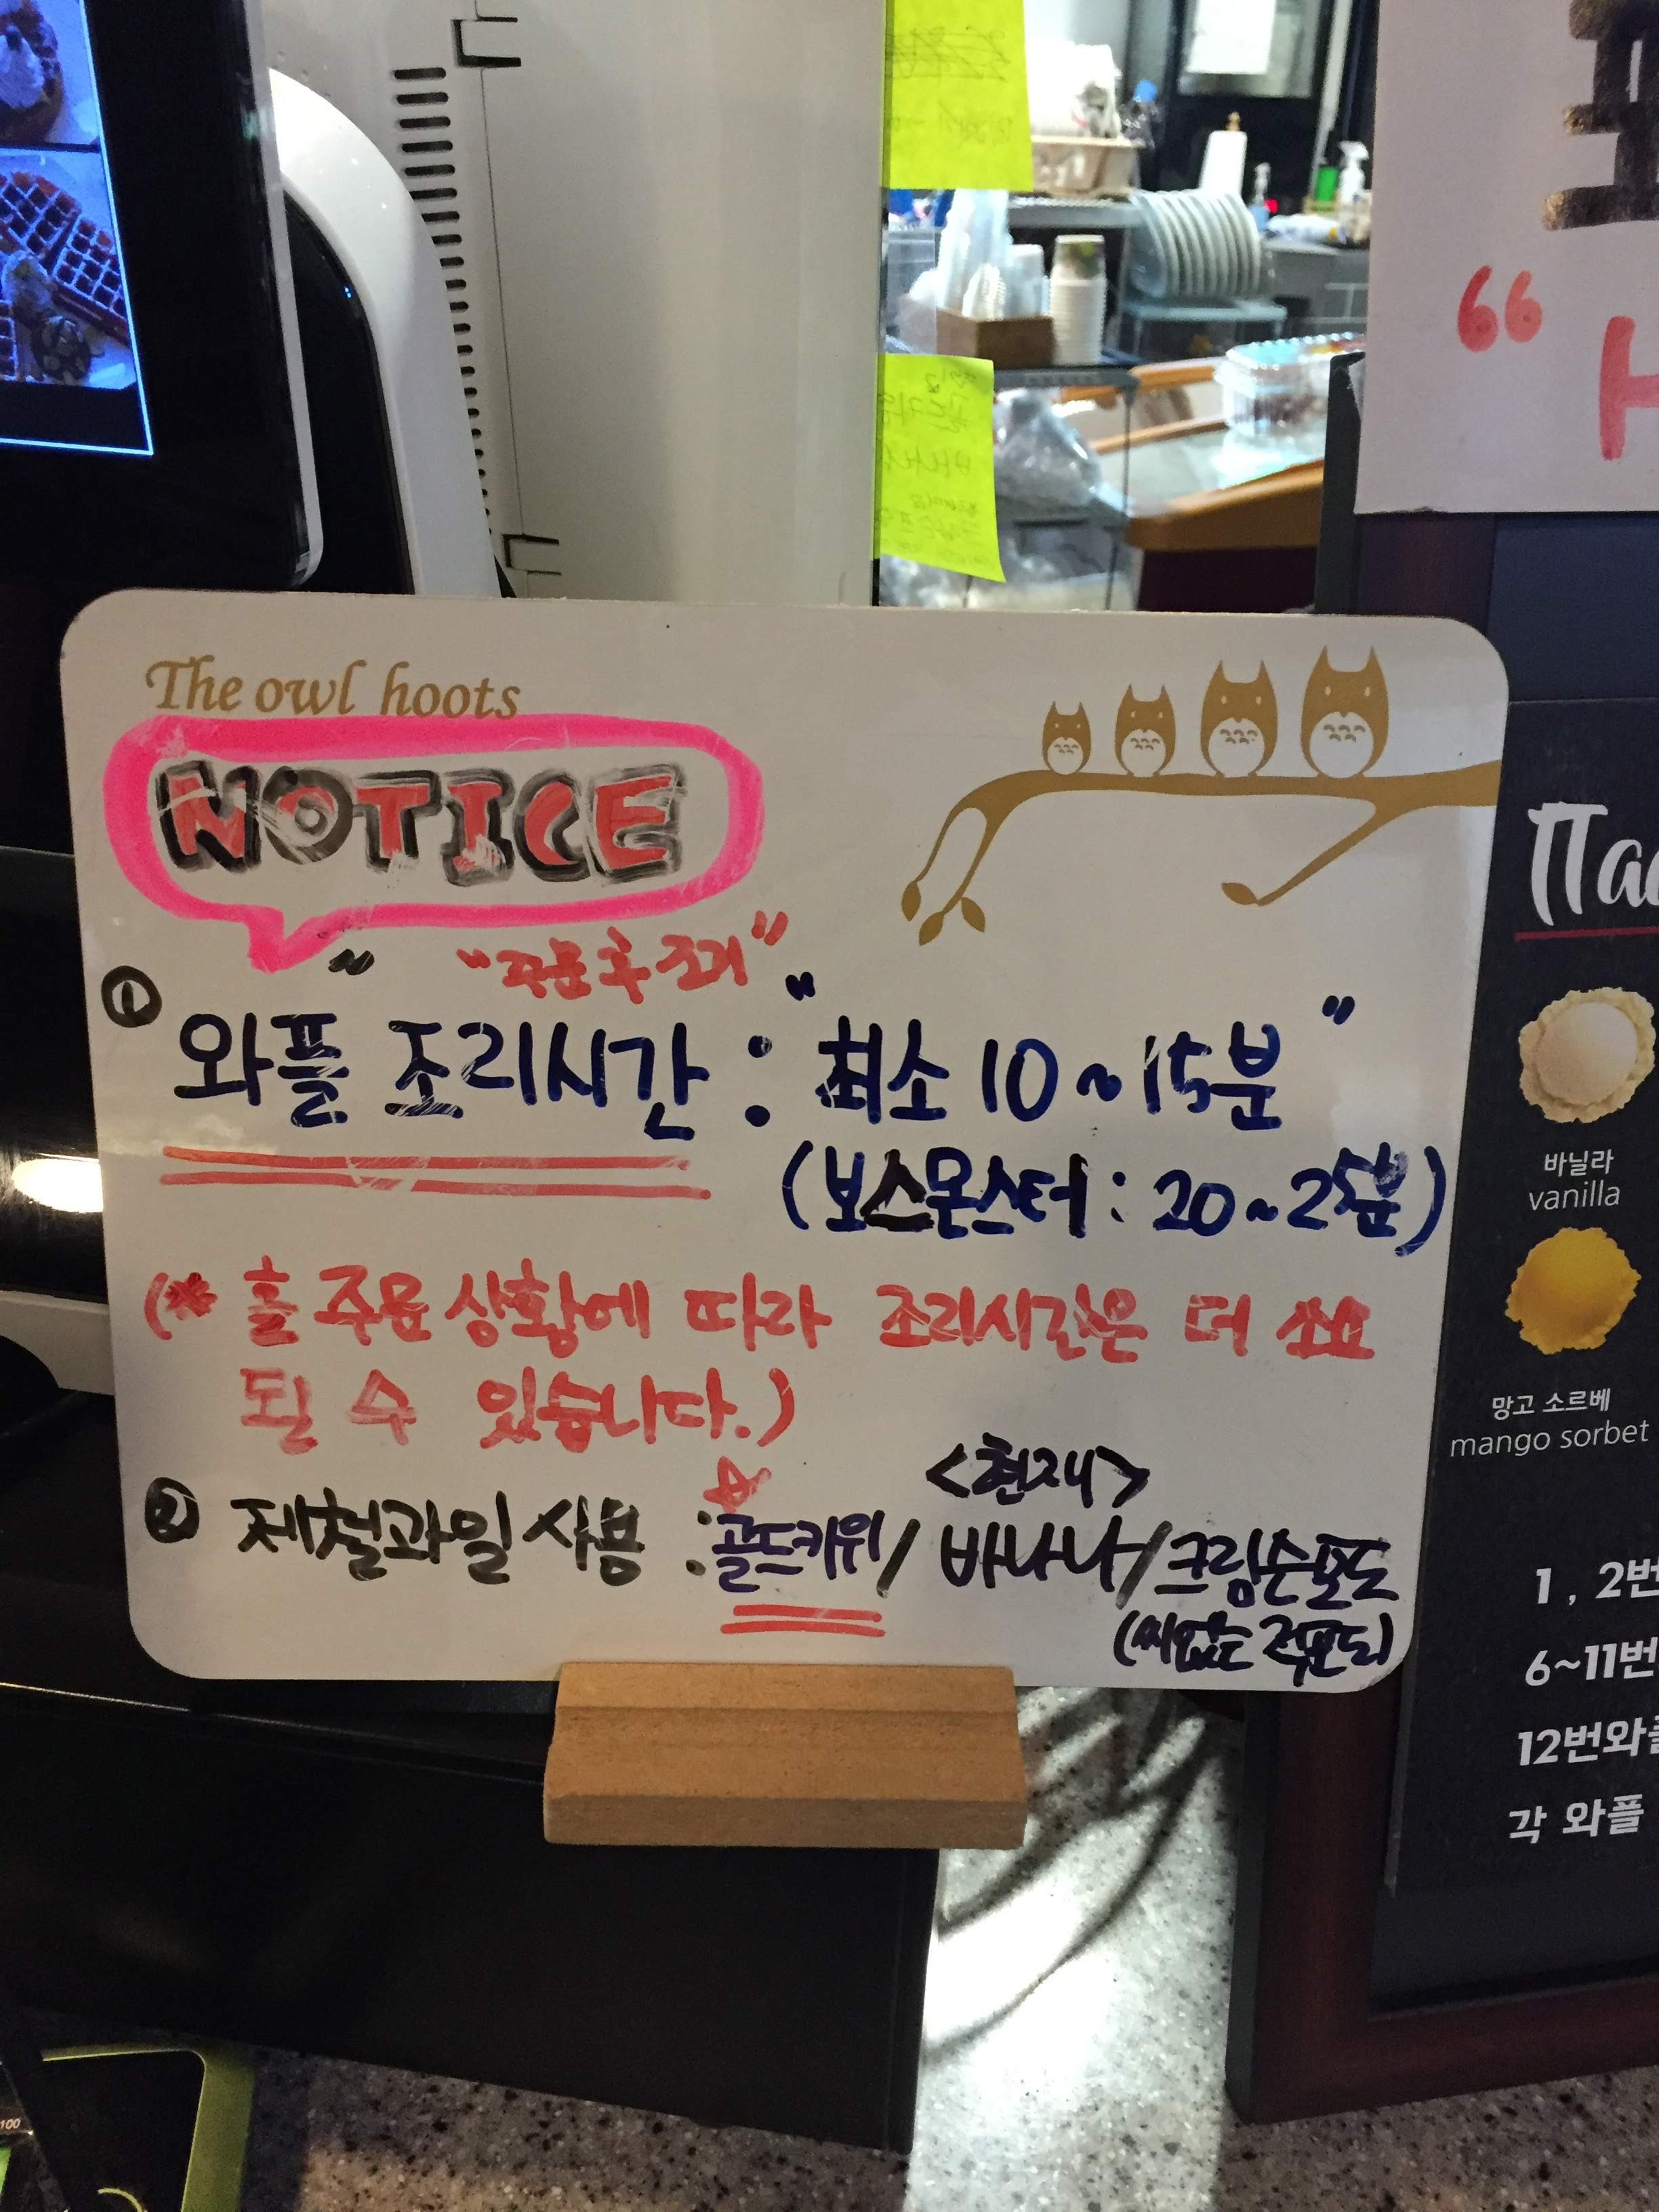 The owl hoots
NOTICE
"주문 후 조리"
① 와플 조리시간 : "최소 10~15분"
(보스몬스터 : 20~25분)
(* 홀 주문 상황에 따라 조리시간은 더 소요
될 수 있습니다.)
<현재>
② 제철과일 사용 : 골드키위 / 바나나 / 크림슨포도
(씨없는 적포도)
바닐라
vanilla
망고 소르베
mango sorbet
1, 2번
6~11번
12번와플
각 와플
100